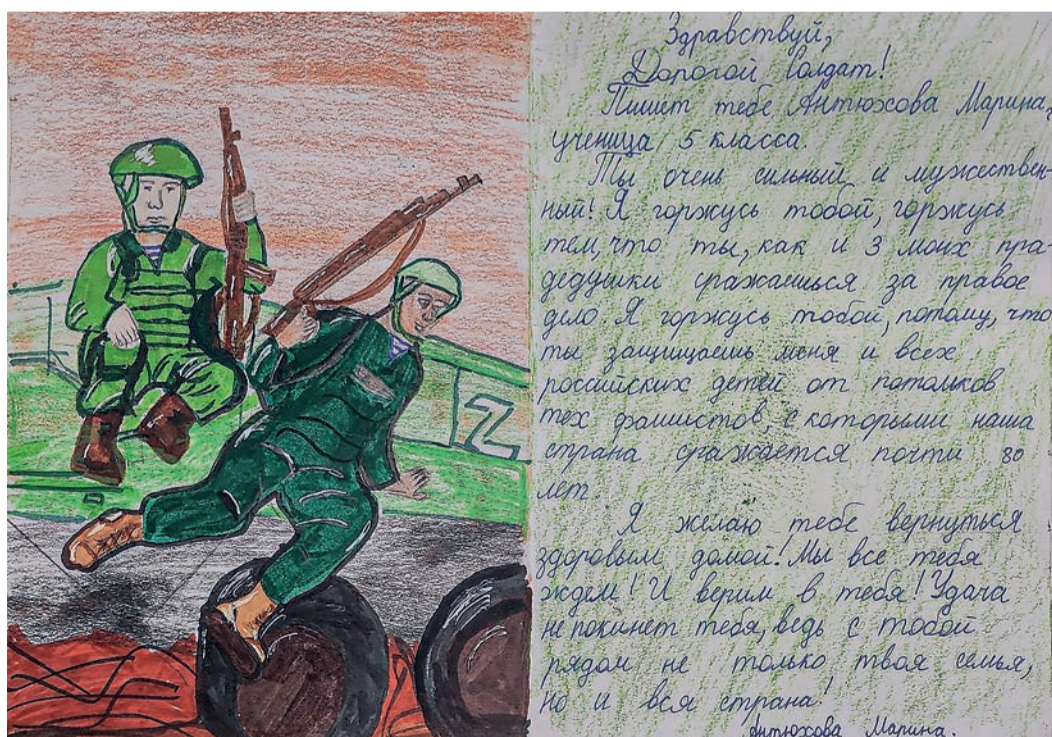 Z
Здравствуй,
Дорогой Солдат!
Пишет тебе Антюхова Марина,
ученица 5 класса.
Ты очень сильный и мужествен-
ный! Я горжусь тобой, горжусь
тем, что ты, как и 3 моих пра-
дедушки сражаешься за правое
дело. Я горжусь тобой, потому, что
ты защищаешь меня и всех
российских детей от потомков
тех фашистов, с которыми наша
страна сражается почти 80
лет.
Я желаю тебе вернуться
здоровым домой! Мы все тебя
ждем! И верим в тебя! Удача
не покинет тебя, ведь с тобой
рядом не только твоя семья,
но и вся страна!
Антюхова Марина.